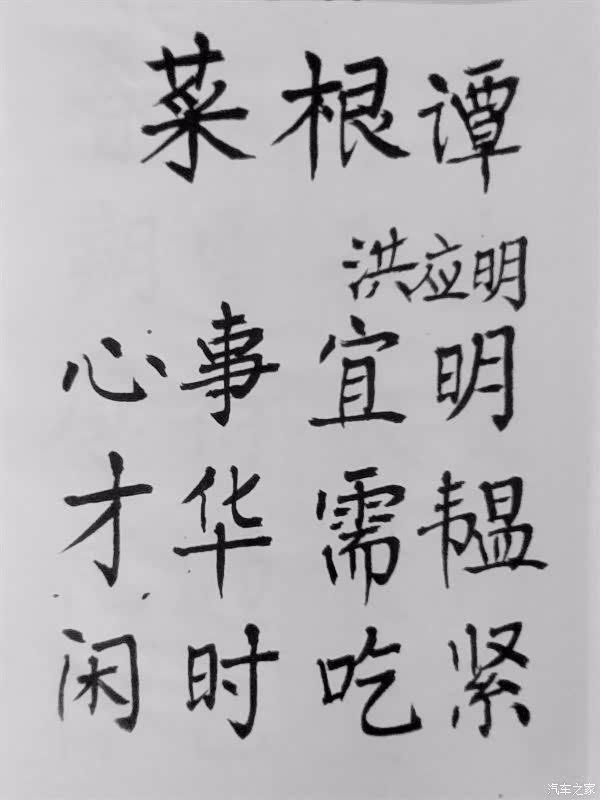 菜根谭
洪应明
心事宜明
才华需韫
闲时吃紧
汽车之家